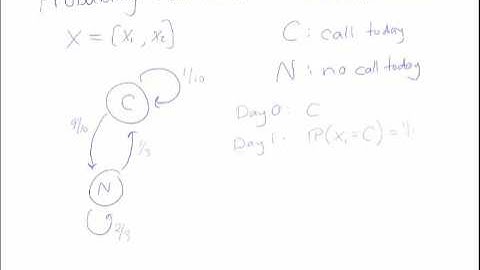 X = [X₁, X₂]
C : call today
N : no call today
C
1/10
9/10
1/3
N
2/3
Day 0 : C
Day 1 : P(X₁=C) =